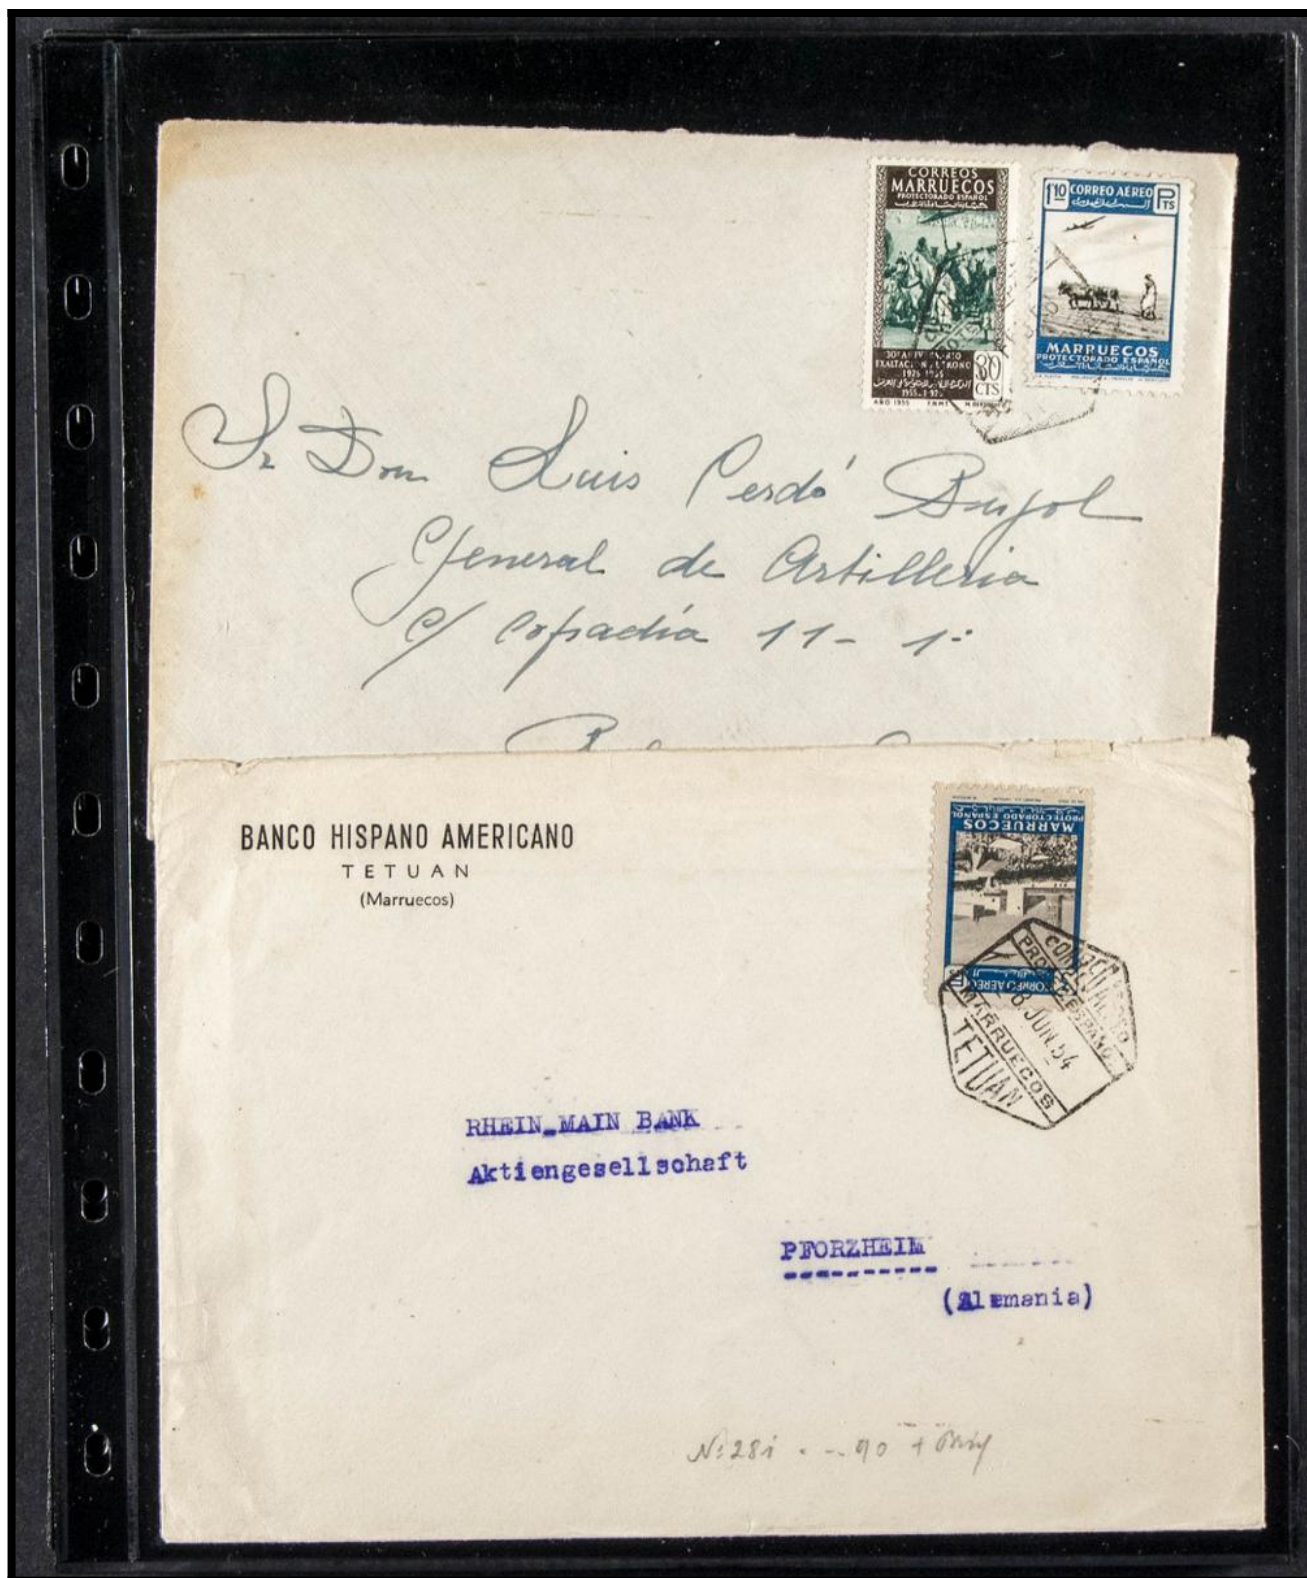 CORREOS
MARRUECOS
PROTECTORADO ESPAÑOL
30º ANIVERSARIO
EXALTACION AL TRONO
30
CTS
AÑO 1955 F.N.M.T.
1'10 CORREO AÉREO PTS
MARRUECOS
PROTECTORADO ESPAÑOL
Sr Don Luis
General de Artilleria
c/ 11- 1º
BANCO HISPANO AMERICANO
TETUAN
(Marruecos)
MARRUECOS
PROTECTORADO ESPAÑOL
CORREO AÉREO
CORREO AEREO
PROT. ESPAÑOL
8 JUN. 54
MARRUECOS
TETUAN
RHEIN-MAIN BANK
Aktiengesellschaft
PFORZHEIM
(Alemania)